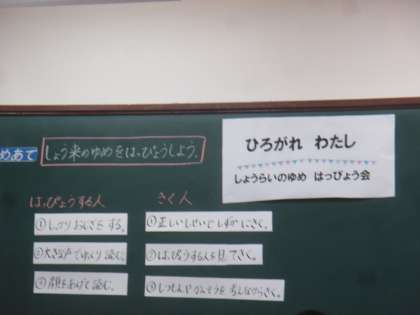 めあて
しょう来のゆめをはっぴょうしよう。
ひろがれ わたし
しょうらいのゆめ はっぴょう会
はっぴょうする人
①しっかりおじぎをする。
②大きな声でゆっくり読む。
③顔をあげて読む。
きく人
①正しいしせいでしずかにきく。
②はっぴょうする人を見てきく。
③しつもんやかんそうを考えながらきく。